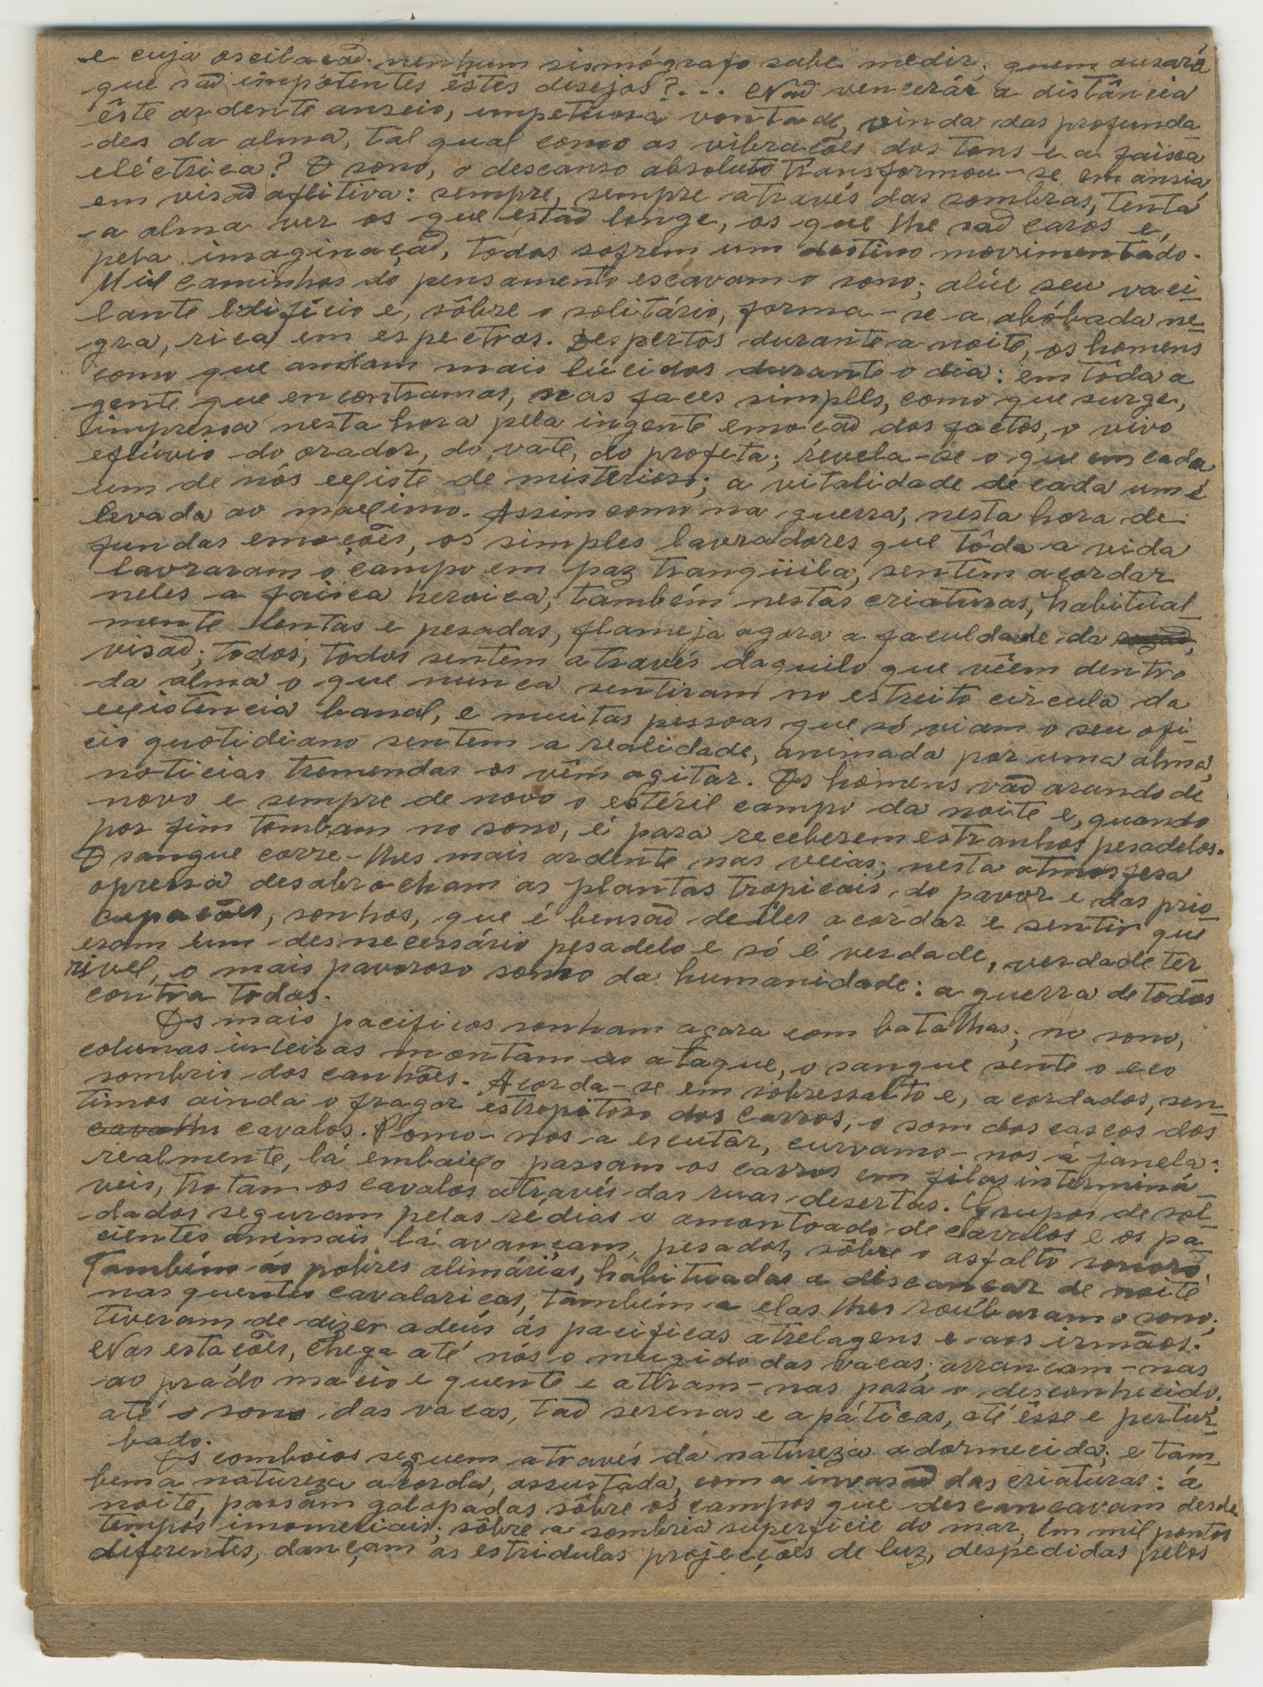 e cuja oscilação nenhum sismógrafo sabe medir; quem ousará
que são impotentes êstes desejos?... Não vencerár a distância
êste ardente anseio, impetuosa vontade, vinda das profunda-
des da alma, tal qual como as vibrações dos tons e a faísca
eléctrica? O sono, o descanso absoluto transformou-se em ansia,
em visão aflitiva: sempre, sempre através das sombras, tenta
a alma ver os que estão longe, os que lhe são caros e,
pela imaginação, todos sofrem um destino movimentado.
Mil caminhos do pensamento escavam o sono; alúe seu vaci-
lante edifício e, sôbre o solitário, forma-se a abóbada ne-
gra, rica em espectros. Despertos durante a noite, os homens
como que andam mais lúcidos durante o dia: em tôda a
gente que encontramos, nas faces simples, como que surge,
impressa nesta hora pela ingente emoção dos factos, o vivo
eflúvio do orador, do vate, do profeta; revela-se o que em cada
um de nós existe de misterioso; a vitalidade de cada um é
levada ao maximo. Assim como na guerra, nesta hora de
fundas emoções, os simples lavradores que tôda a vida
lavraram o campo em paz tranqüila, sentem acordar
neles a faísca heroica; também nestas criaturas, habitual-
mente lentas e pesadas, flameja agora a faculdade da
visão; todos, todos sentem através daquilo que vêem dentro
da alma o que nunca sentiram no estreito circula da
existência banal, e muitas pessoas que só viam o seu ofi-
cio quotidiano sentem a realidade, animada por uma alma,
noticias tremendas os vêm agitar. Os homens vão arando de
novo e sempre de novo o estéril campo da noite e, quando
por fim tombam no sono, é para receberem estranhos pesadelos.
O sangue corre-lhes mais ardente nas veias; nesta atmosfera
opressa desabrocham as plantas tropicais do pavor e das prio-
cupações, sonhos, que é bensão deles acordar e sentir que
eram um desnecessário pesadelo e só é verdade, verdade ter-
rivel, o mais pavoroso sonho da humanidade: a guerra de todos
contra todos.
Os mais pacificos sonham agora com batalhas; no sono,
colunas inteiras montam ao ataque, o sangue sente o eco
sombrio dos canhões. Acorda-se em sobressalto e, acordados, sen-
timos ainda o fragor estrepitoso dos carros, o som dos cascos dos
cavalos cavalos. Pomo-nos a escutar, curvamo-nos á janela:
realmente, lá embaixo passam os carros em filas intermina-
veis, trotam os cavalos através das ruas desertas. Grupos de sol-
dados seguram pelas rédias o amontoado de cavalos e os pa-
cientes animais lá avançam, pesados, sôbre o asfalto sonoro.
Também ás pobres alimárias, habituadas a descançar de noite
nas quentes cavalariças, também a elas lhes roubaram o sono;
tiveram de dizer adeus ás pacificas atrelagens e aos irmãos.
Nas estações, chega até nós o mugido das vacas; arrancam-nas
ao prado macio e quente e atiram-nas para o desconhecido.
até o sono das vacas, tão serenas e apáticas, até êsse é pertur-
bado.
Os comboios seguem através da natureza adormecida; e tam-
bem a natureza acorda, assustada, com a invasão das criaturas: á
noite, passam galopadas sôbre os campos que descançavam desde
tempos imemoriais; sôbre a sombria superficie do mar, em mil pontos
diferentes, dançam as estridulas projecções de luz, despedidas pelos